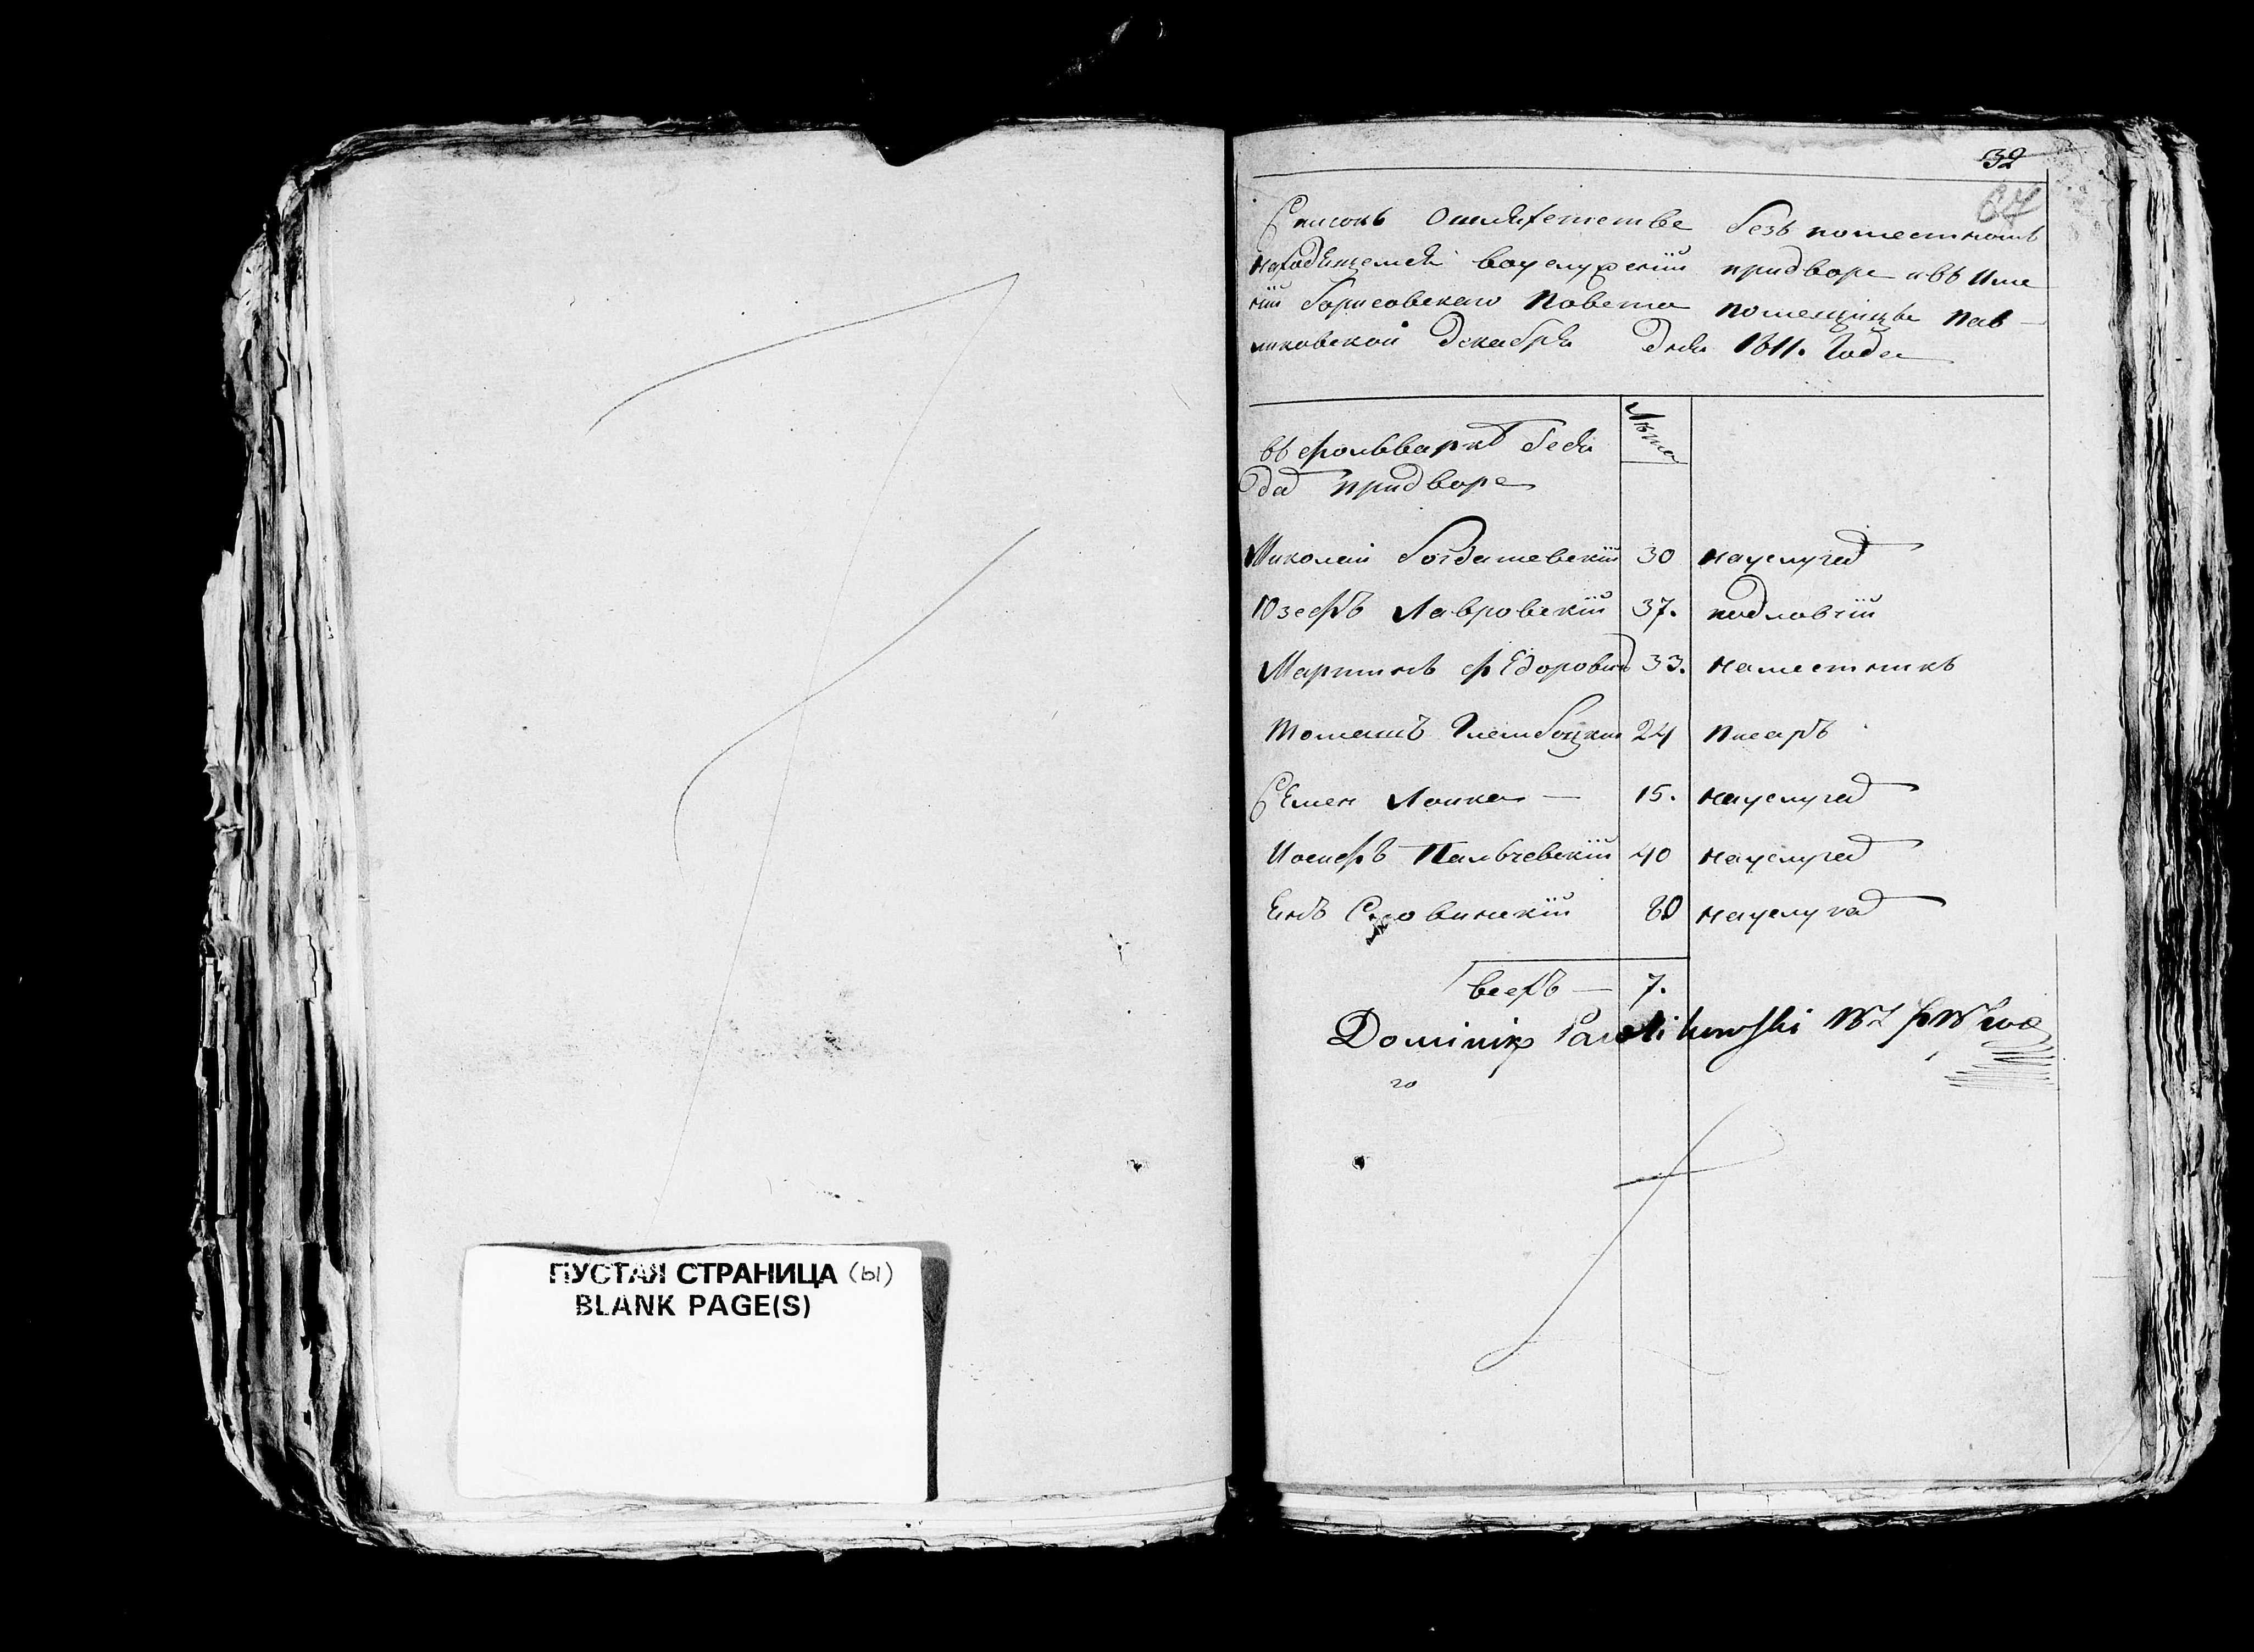 ПУСТАЯ СТРАНИЦА (61)
BLANK PAGE(S)
32
67
Списокъ Ошляхетстве безъ поместномъ
находящемся воуслужении придворе ивъ Име
нiи борисовскаго Повета помещицы Пав
ликовской Декабря Дня 1811. Года
Лета
въ фольварке беся
да придворе
Миколай богдашевскiй 30 науслуге
Юзефъ Лавровскiй 37. подловчiй
Мартинъ фЕдорович 33. наместникъ
Томашъ Глембоцкiй 24 Писаръ
СЕмен Лапка — 15. науслуге
Иосифъ Пальчевскiй 40 науслуге
Енъ 80 науслуге
всехъ — 7.
Dominik Pawlikowski